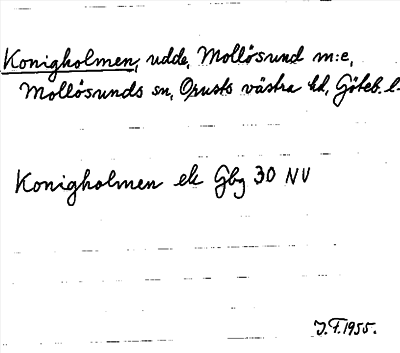 Konigholmen, udde, Mollösund m:e,
Mollösunds sn, Orusts västra hd, Göteb. l.
Konigholmen ek Gbg 30 NV
J.F. 1955.